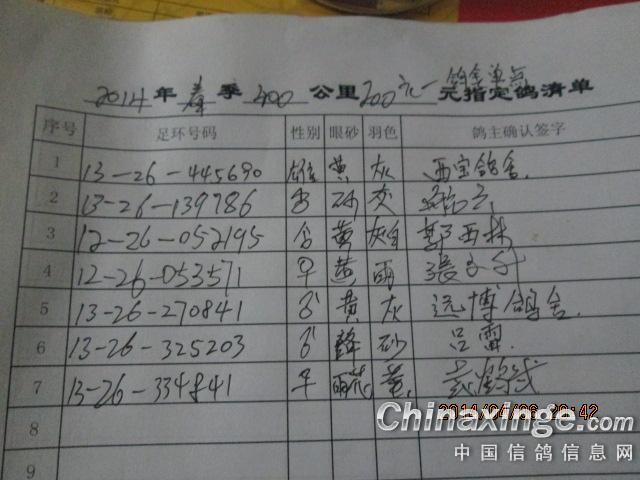 2014年春季400公里200元一鸽舍单点元指定鸽清单
序号 足环号码 性别 眼砂 羽色 鸽主确认签字
1 13-26-445690 雄 黄 灰 西宝鸽舍
2 13-26-139786 砂
3 12-26-052195 黄 灰白 郭西林
4 12-26-053571 黄 雨 張
5 13-26-270841 黄 灰 远博鸽舍
6 13-26-325203 砂 吕雷
7 13-26-334841 雨花 黄
8
9
2014/04/26 20:42
Chinaxinge.com
中国信鸽信息网